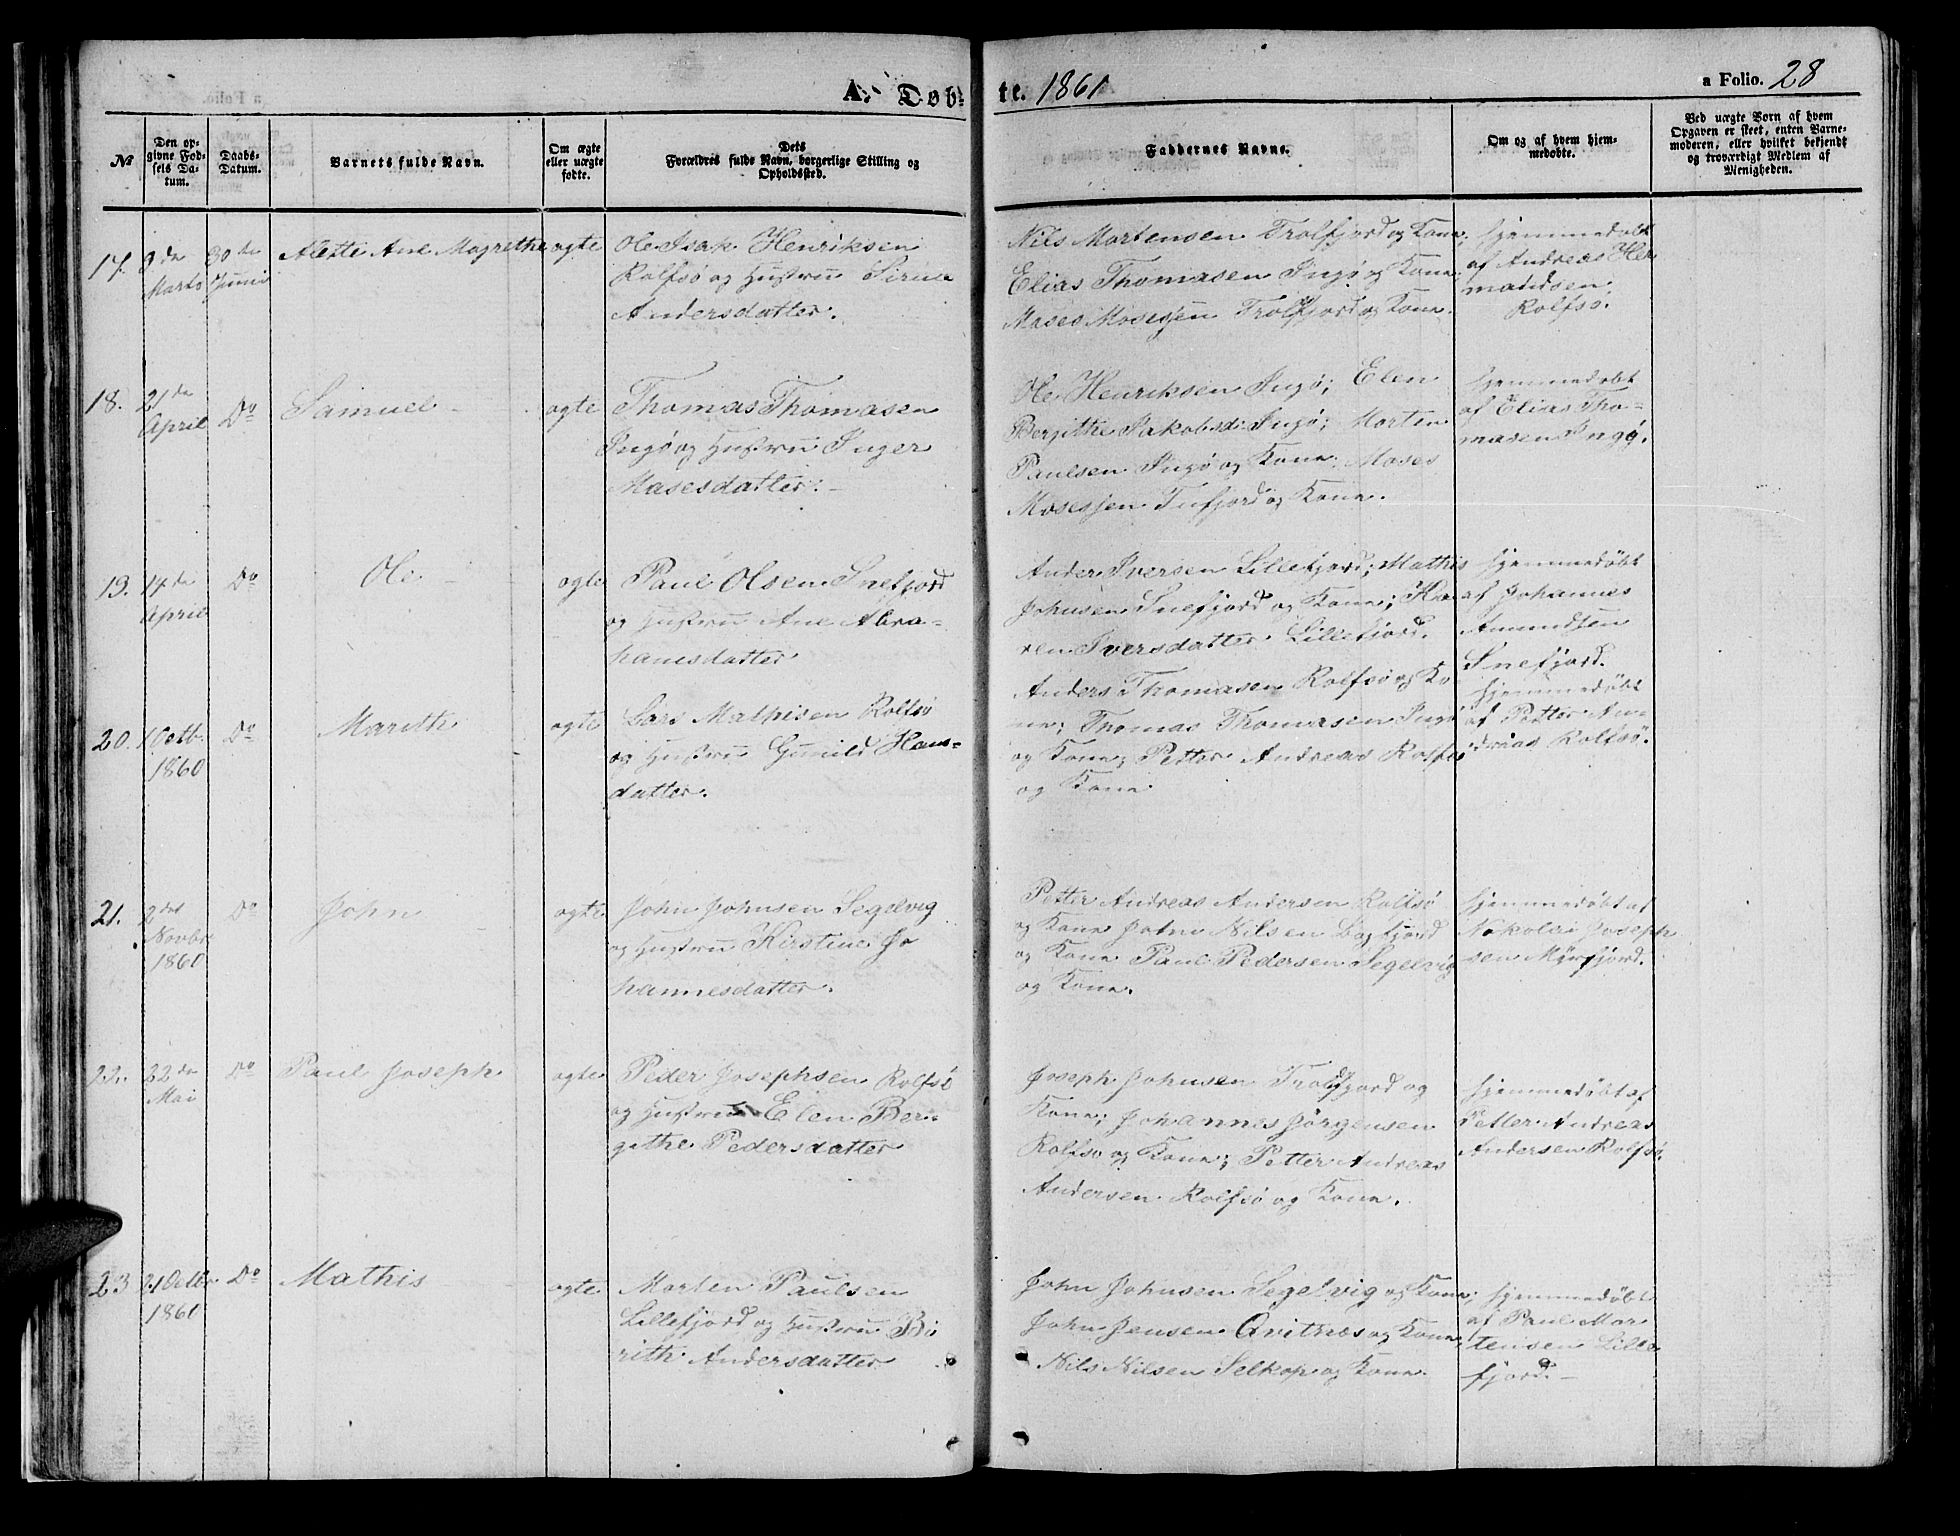 A. Døb-
te. 1861
a Folio. 28
No
Den op-
givne Fød-
sels Da-
tum.
Daabs-
Datum.
Barnets fulde Navn.
Om ægte
eller uægte
fødte.
Dets
Forældres fulde Navn, borgerlige Stilling og
Opholdssted.
Faddernes Navne.
Om og af hvem hjem-
medøbte.
Ved uægte Børn af hvem
Opgaven er skeet, enten Barne-
moderen, eller hvilket bekjendt
og troværdigt Medlem af
Menigheden.
17. 9de Marts
30te Juni
Alette Ane Magrethe
ægte
Ole Isak Henriksen
Rolfsø og Hustru Sirine
Andersdatter.
Nils Mortensen Trolfjord og Kone;
Elias Thomasen Ingø og Kone
Moses Mosesjen Trolfjord og Kone.
Hjemmedøbt
af Andreas Her
mandsen
Rolfsø.
18. 21de April
Do
Samuel
ægte
Thomas Thomasen
Ingø og Hustru Inger
Masesdatter.
Ole Henriksen Ingø; Elen
Bergithe Jakobsd: Ingø; Morten
Paulsen Ingø og Kone, Moses
Mosesjen Tufjord og Kone.
Hjemmedøbt
af Elias Tho-
masen Ingø.
19. 14de April
Do
Ole
ægte
Paul Olsen Snefjord
og Hustru Ane Abra-
hamsdatter
Ander Iversen Lillefjord; Mathis
Johnsen Snefjord og Kone; Ka
ren Iversdatter Lillefjord.
Hjemmedøbt
af Johannes
Amundsen
Snefjord.
20. 1 Octb. 1860
Do
Marith
ægte
Lars Mathisen Rolfsø
og Hustru Gunild Hans-
datter.
Anders Thomasen Rolfsø og Ko
ne; Thomas Thomasen Ingø
og Kone; Petter Andreas Rolfsø
og Kone
Hjemmedøbt
af Petter An-
dreas Rolfsø.
21. 2det Novbr 1860
Do
John
ægte
John Johnsen Segelvig
og Hustru Kirstine Jo
hannesdatter.
Petter Andreas Andersen Rolfsø
og Kone John Nilsen Bagfjord
og Kone Paul Pedersen Segelvig
og Kone.
Hjemmedøbt af
Nokolai Joseph
sen Myrfjord.
22. 22de Mai
Do
Paul Joseph
ægte
Peder Josephsen Rolfsø
og Hustru Elen Ber-
githe Pedersdatter
Joseph Johnsen Trolfjord og
Kone; Johannes Jørgensen
Rolfsø og Kone; Petter Andreas
Andersen Rolfsø og Kone.
Hjemmedøbt af
Petter Andreas
Andersen Rolfsø.
23 21 Octbr. 1860
Do
Mathis
ægte
Morten Paulsen
Lillefjord og Hustru Be
rith Andersdatter
John Johnsen Segelvig og Kone;
John Jensen Qvitnæs og Kone,
Nils Nilsen Selkop og Kone.
Hjemmedøbt
af Paul Mor
tensen Lille
fjord.